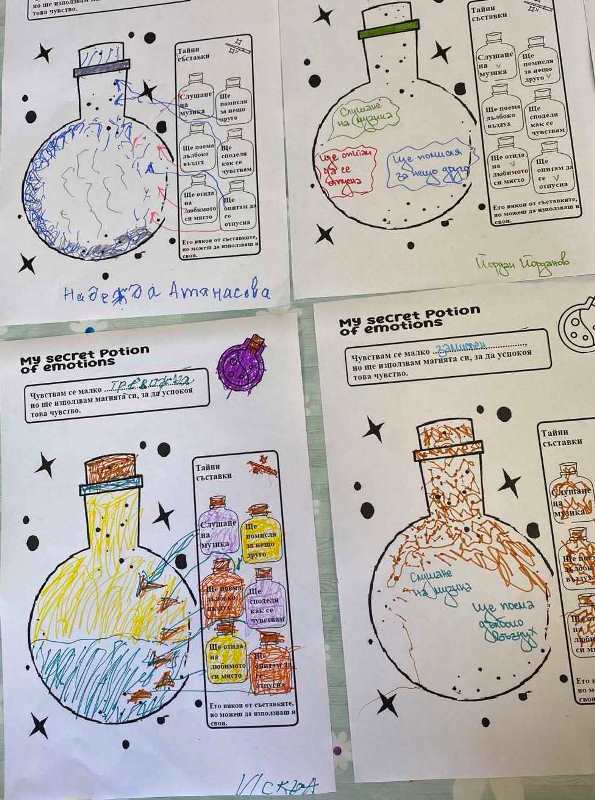 но ще използвам магията си, за да успокоя
това чувство.
Тайни
съставки
Слушане
на
музика
Ще
помисля
за нещо
друго
Ще поема
дълбоко
въздух
Ще
споделя
как се
чувствам
Ще отида
на
любимото
си място
Ще
опитам да
се
отпусна
Ето някои от съставките,
но можеш да използваш и
свои.
Надежда Атанасова
Тайни
съставки
Слушане
на музика
Ще опитам
да се
отпусна
Ще помисля
за нещо друго
Слушане
на
музика
Ще
помисля
за нещо
друго
Ще поема
дълбоко
въздух
Ще
споделя
как се
чувствам
Ще отида
на
любимото
си място
Ще
опитам да
се
отпусна
Ето някои от съставките,
но можеш да използваш и
свои.
Йордан Йорданов
My secret Potion
of emotions
Чувствам се малко ...тревожна
но ще използвам магията си, за да успокоя
това чувство.
Тайни
съставки
Слушане
на
музика
Ще
помисля
за нещо
друго
Ще поема
дълбоко
въздух
Ще
споделя
как се
чувствам
Ще отида
на
любимото
си място
Ще
опитам да
се
отпусна
Ето някои от съставките,
но можеш да използваш и
свои.
Искра
My secret Potion
of emotions
Чувствам се малко
но ще използвам магията си, за да успокоя
това чувство.
Тайни
съставки
Слушане
на музика
Ще поема
дълбоко
въздух
Слушане
на
музика
Ето
но
свои.